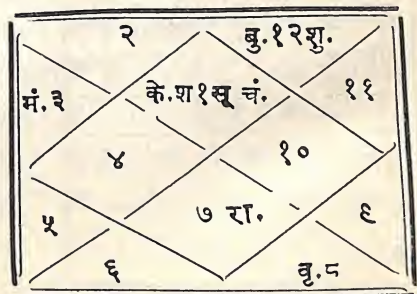 २ बु.१२शु.
मं.३ के.श१सू चं. ११
४ १०
५ ७ रा. ६
६ वृ.८